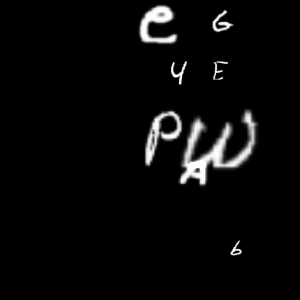 e G
4 E
P W
A
6